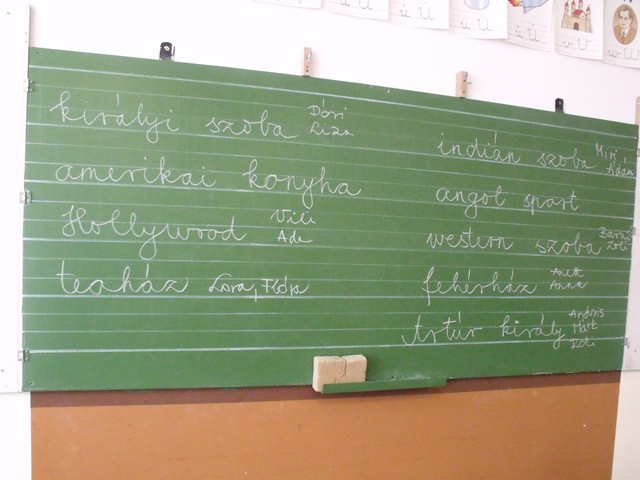 királyi szoba Dóri
Liza
amerikai konyha
Hollywood Vili
Ade
teaház Lora, Flóra
indián szoba Miri
Ádám
angol sport
western szoba
Zoli
fehérház Anett
Anna
Artúr király Andris
Márk
Zoli